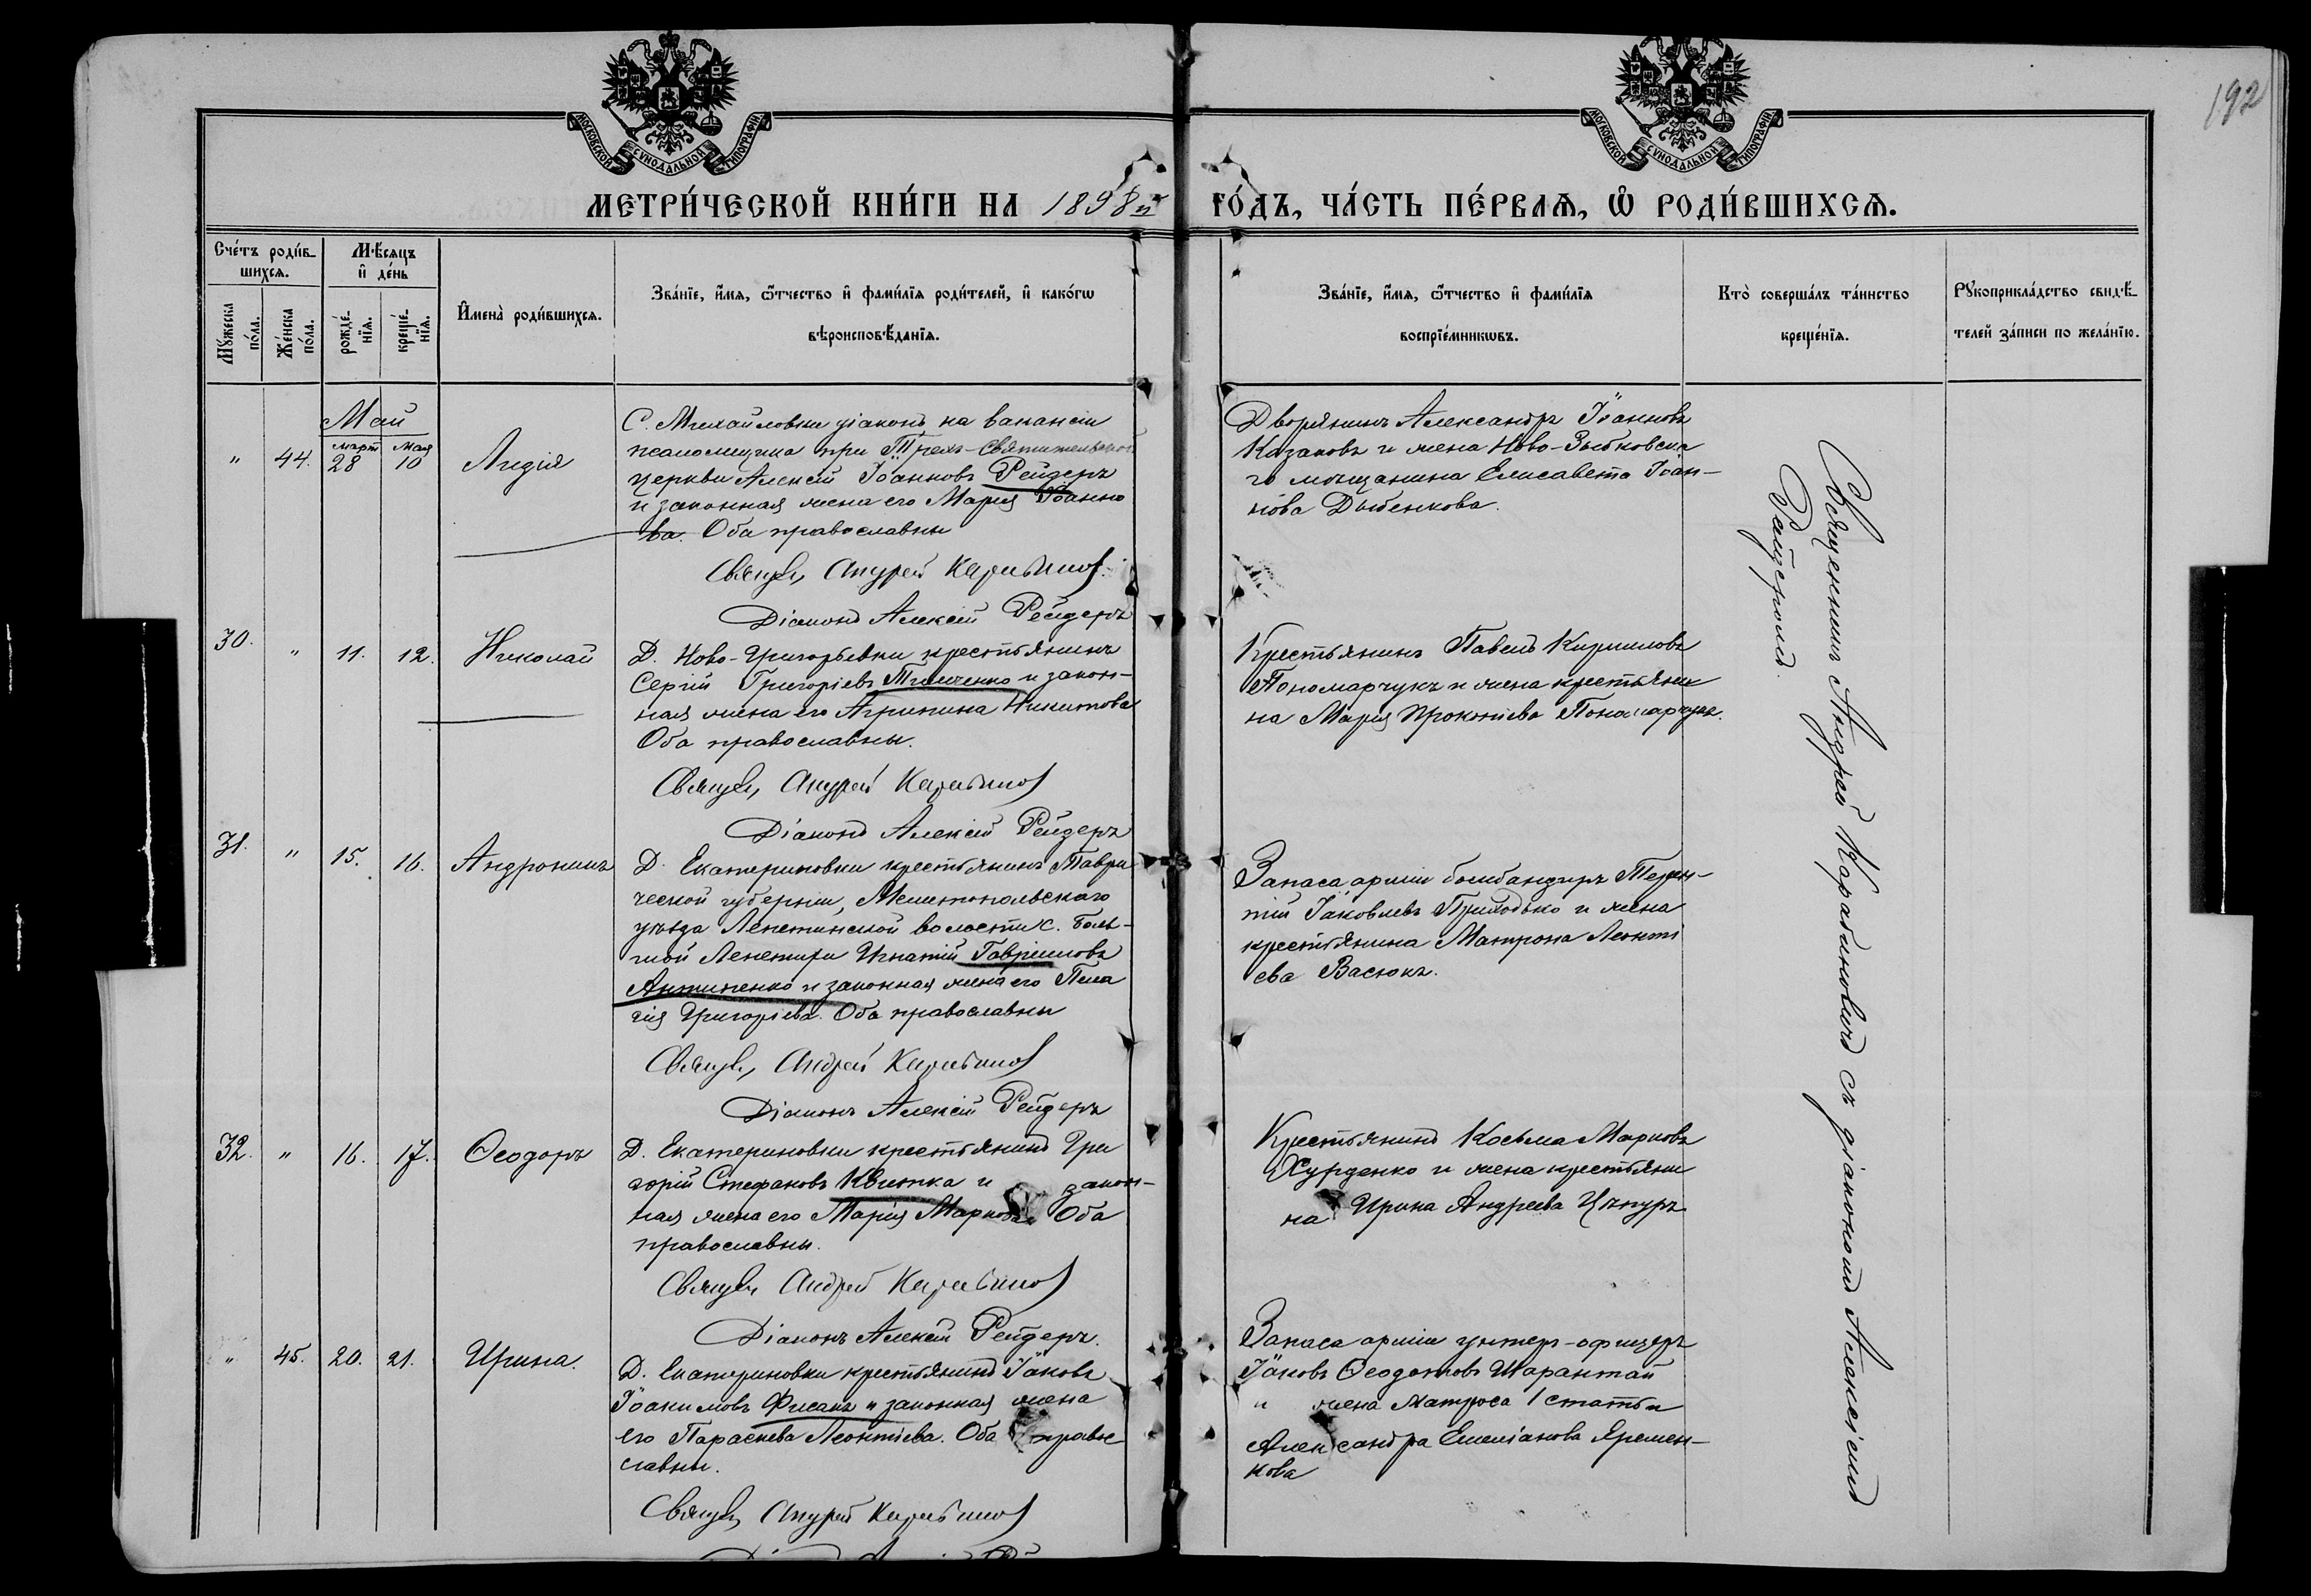 192
МОСКОВСКОЙ СѴНОДАЛЬНОЙ ТИПОГРАФІИ
МОСКОВСКОЙ СѴНОДАЛЬНОЙ ТИПОГРАФІИ
МЕТРИ́ЧЕСКОЙ КНИ́ГИ НА 1898й ГО́ДЪ, ЧА́СТЬ ПЕ́РВАѦ, Ѡ҆ РОДИ́ВШИХСѦ.
Сче́тъ роди́в-
шихсѧ.
Мꙋ́жеска
по́ла.
Же́нска
по́ла.
Мѣ́сѧцъ
и҆ де́нь
рожде́-
нїѧ.
креще́-
нїѧ.
И҆мена̀ роди́вшихсѧ.
Зва́нїе, и҆́мѧ, ѻ҆́тчество и҆ фами́лїѧ роди́телей, и҆ како́гѡ
вѣроисповѣ́данїѧ.
Зва́нїе, и҆́мѧ, ѻ҆́тчество и҆ фами́лїѧ
воспрїе́мникѡвъ.
Кто̀ соверша́лъ та́инство
креще́нїѧ.
Рꙋкоприкла́дство свидѣ́-
телей за́писи по жела́нїю.
Май
мартъ мая
" 44. 28 10 Лидія
С. Михайловки діаконъ на вакансіи
псаломщика при Трехъ-Святительской
церкви Алексій Іоанновъ Рейдеръ
и законная жена его Марія Іоанно
ва. Оба православны
Священ, Андрей Карабинов
Діаконъ Алексій Рейдеръ
Дворянинъ Александръ Іоанновъ
Казаковъ и жена Ново-Зыбковска
го мѣщанина Елисавета Іоан-
нова Дыбенкова.
30. " 11. 12. Николай
Д. Ново-Григорьевки крестьянинъ
Сергій Григоріевъ Тимченко и закон-
ная жена его Агрипина Никитова
Оба православны.
Священ, Андрей Карабинов
Діаконъ Алексій Рейдеръ
Крестьянинъ Павелъ Кирилловъ
Пономарчукъ и жена крестьяни
на Марія Прокопіева Пономарчукъ.
31. " 15. 16. Андроникъ
Д. Екатериновки крестьянинъ Таври
ческой губерніи, Мелитопольскаго
уѣзда Лепетинской волости с. Боль-
шой Лепетихи Игнатій Гавріиловъ
Антипенко и законная жена его Пела
гія Григоріева. Оба православны
Священ, Андрей Карабинов
Діаконъ Алексій Рейдеръ
Запаса арміи бомбандиръ Терен-
тій Іаковлевъ Приходько и жена
крестьянина Матрона Леонті
ева Васюкъ.
32. " 16. 17. Ѳеодоръ
Д. Екатериновки крестьянинъ Гри
горій Стефановъ Квитка и закон-
ная жена его Марія Маркова Оба
православны.
Священ Андрей Карабинов
Діаконъ Алексій Рейдеръ.
Крестьянинъ Косьма Марковъ
Хурденко и жена крестьяни
на Ирина Андреева Цынуръ
" 45. 20. 21. Ирина.
Д. Екатериновки крестьянинъ Іаковъ
Іоакимовъ Фисакъ и законная жена
его Параскева Леонтіева. Оба право
славны.
Священ, Андрей Карабинов
Запаса арміи унтеръ-офицеръ
Іаковъ Ѳеодотовъ Шарантай
и жена матроса 1 статьи
Александра Емеліанова Яремен-
кова
Священникъ Андрей Карабиновичъ съ діакономъ Алексіемъ
Рейдеромъ.